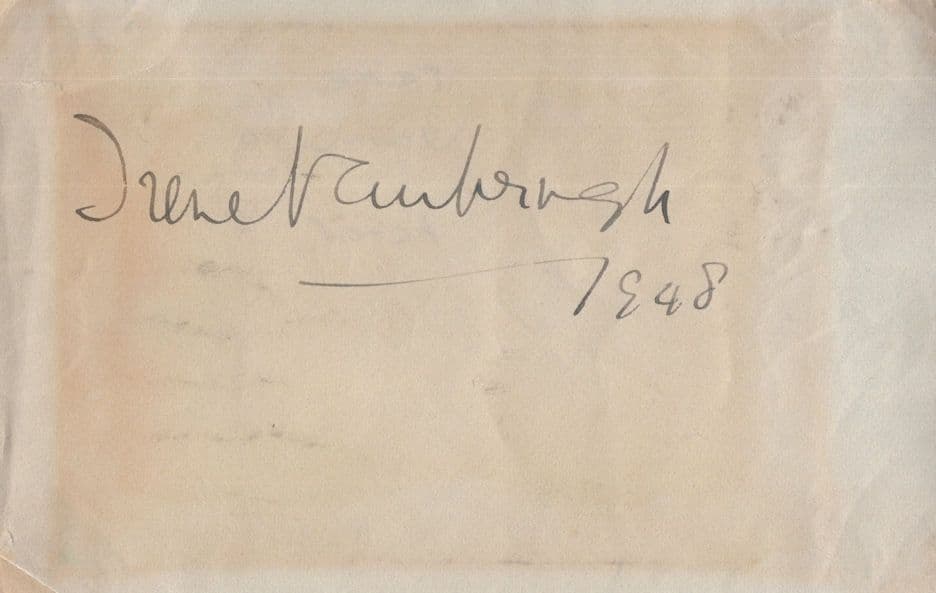 Irene Vanbrugh
1948